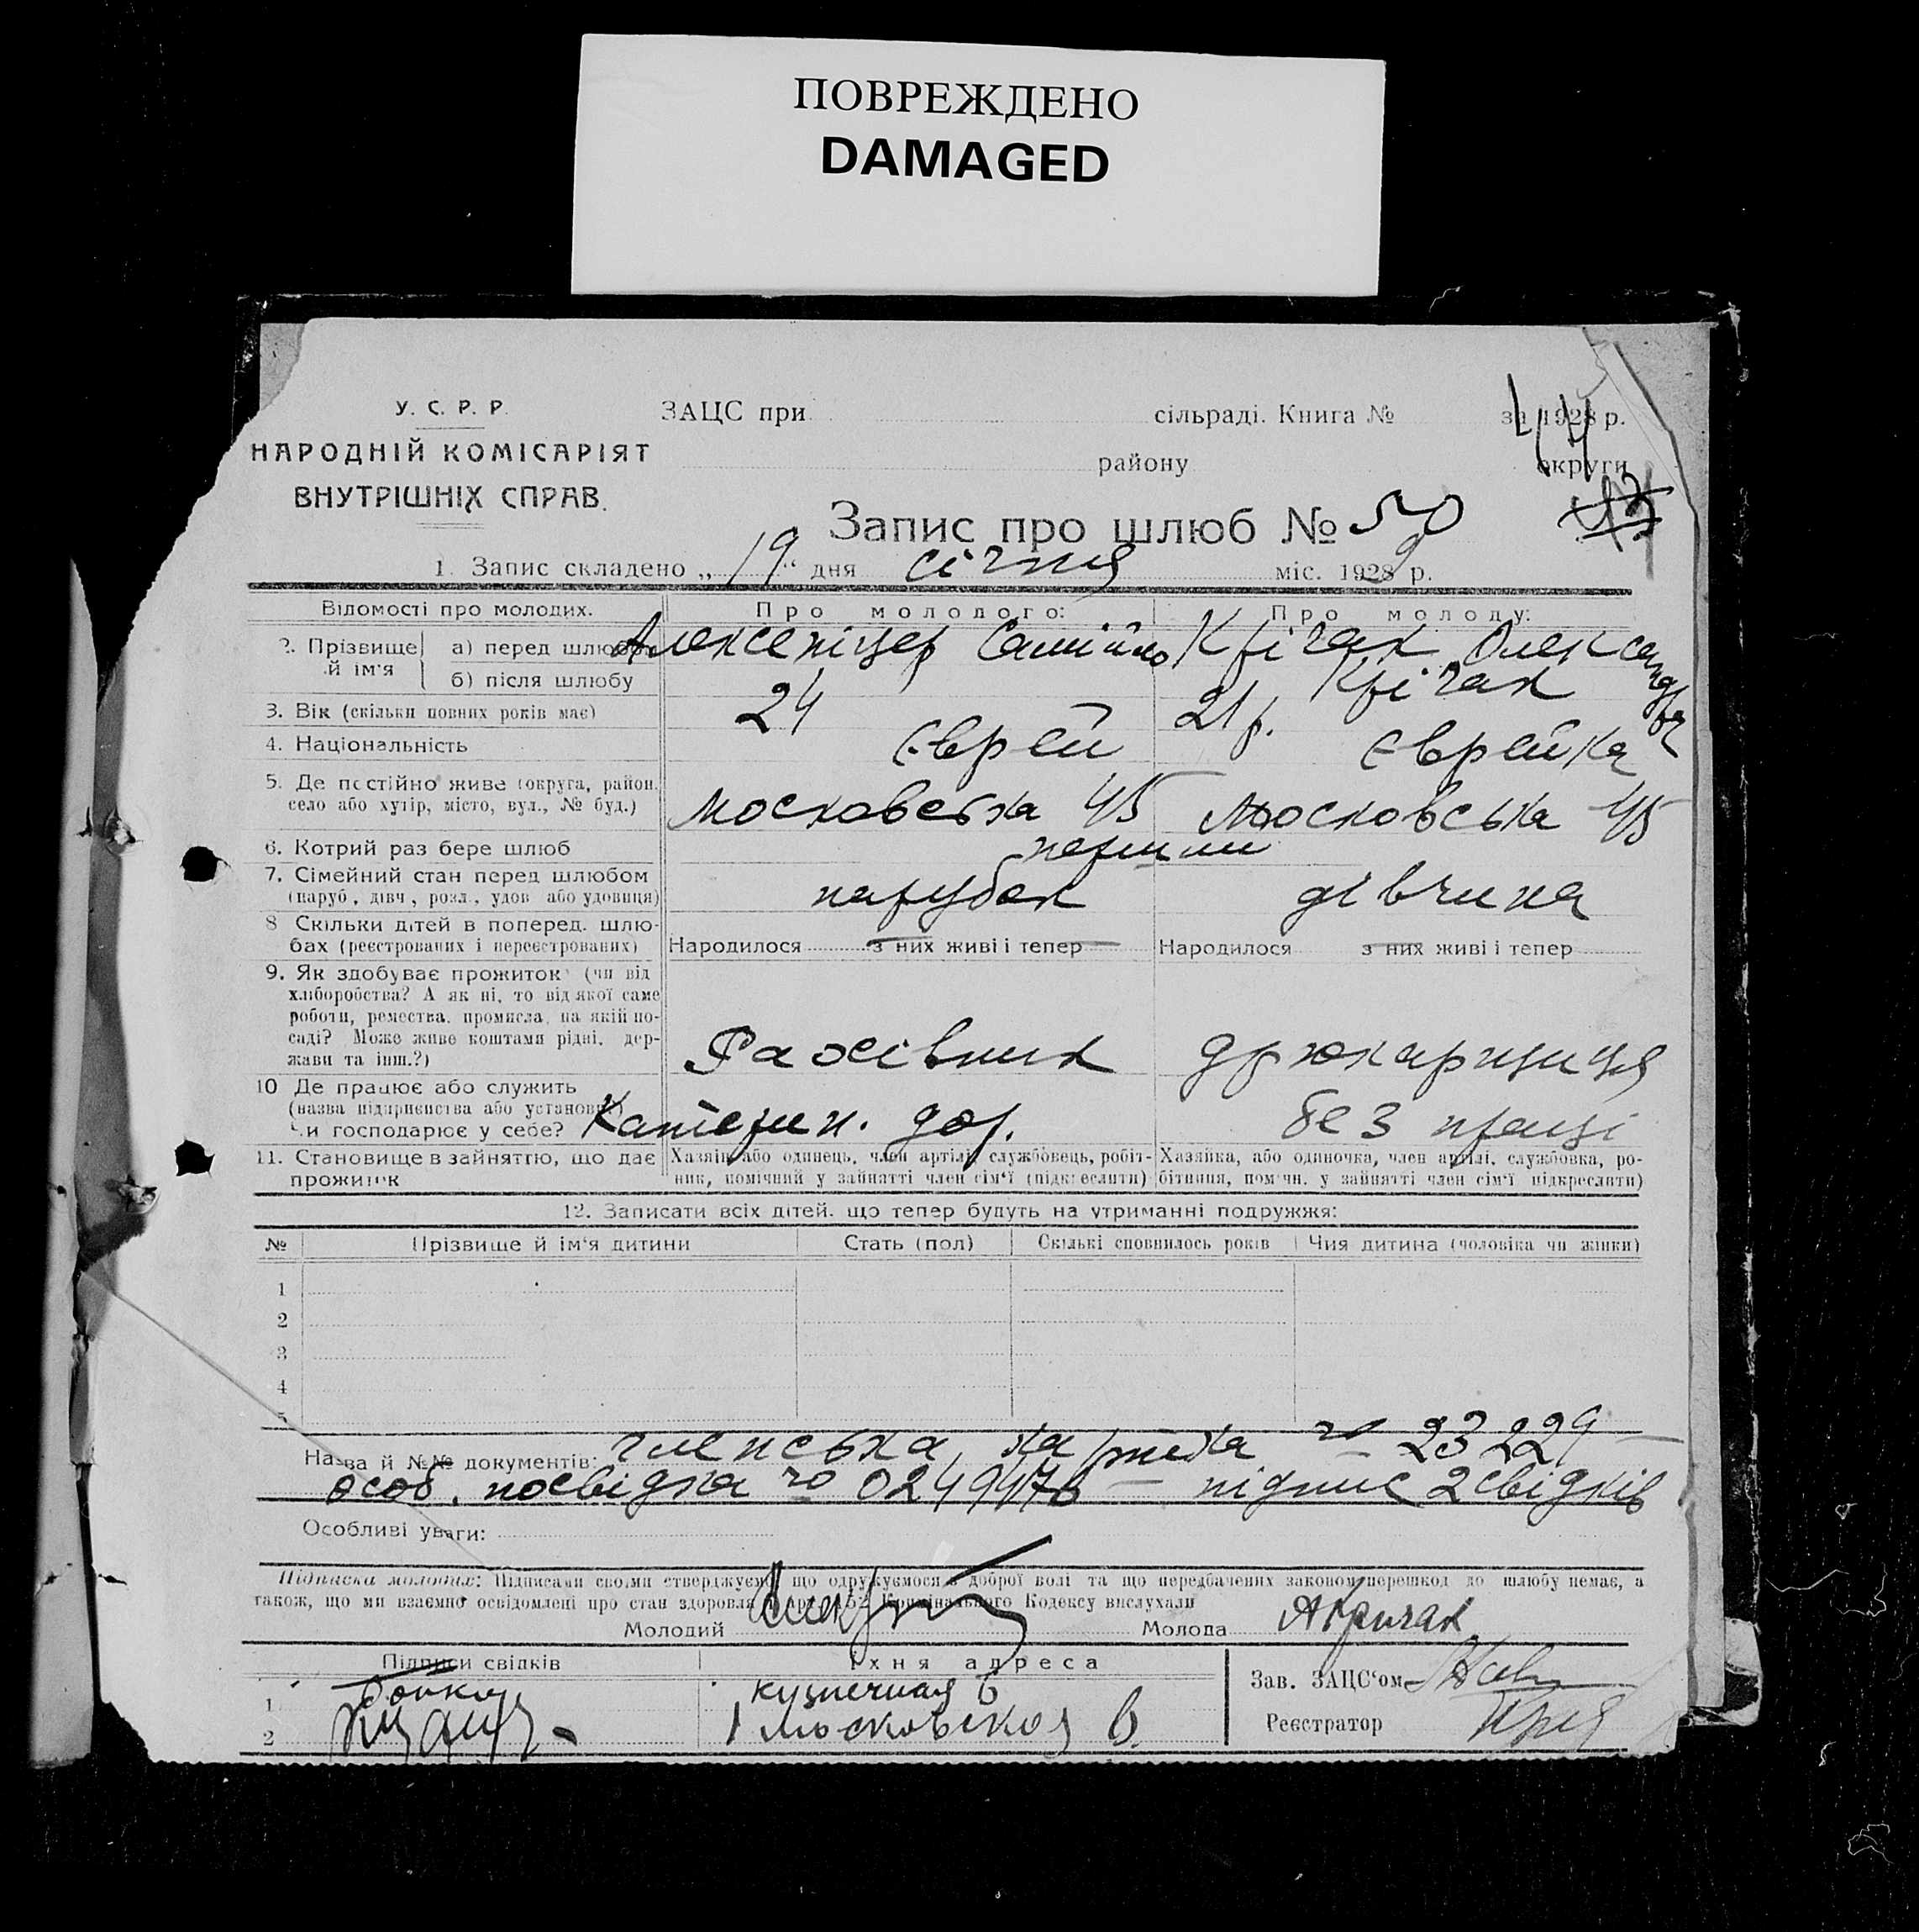 ПОВРЕЖДЕНО
DAMAGED
У. С. Р. Р.
НАРОДНІЙ КОМІСАРІЯТ
ВНУТРІШНІХ СПРАВ.
ЗАЦС при сільраді. Книга № за 1928 р.
44
району округи
Запис про шлюб № 50
1. Запис складено „19" дня січня міс. 1929 р.
Відомості про молодих. Про молодого: Про молоду:
2. Прізвище й ім'я
а) перед шлюбом Алексеніцер Самійло Крічак Олександра
б) після шлюбу Крічак
3. Вік (скільки повних років має) 24 21 р.
4. Національність єврей єврейка
5. Де постійно живе (округа, район, село або хутір, місто, вул., № буд.) Московська 45 Московська 45
6. Котрий раз бере шлюб перший
7. Сімейний стан перед шлюбом (паруб., дівч., розл., удов. або удовиця) парубок дівчина
8 Скільки дітей в поперед. шлюбах (реєстрованих і нереєстрованих) Народилося з них живі і тепер Народилося з них живі і тепер
9. Як здобуває прожиток (чи від хліборобства? А як ні, то від якої саме роботи, ремества, промисла, на якій посаді? Може живе коштами рідні, держави та інш.?) Рахівник друкарщиця
10 Де працює або служить (назва підприємства або установи?) Чи господарює у себе? Катерин. дор. без праці
11. Становище в зайняттю, що дає прожиток
Хазяїн або одинець, член артілі, службовець, робітник, помічний у зайнятті член сім'ї (підкреслити)
Хазяйка, або одиночка, член артілі, службовка, робітниця, помічн. у зайнятті член сім'ї підкреслити)
12. Записати всіх дітей, що тепер будуть на утриманні подружжя:
№ Прізвище й ім'я дитини Стать (пол) Скількі сповнилось років Чия дитина (чоловіка чи жінки)
1
2
3
4
5
Назва й №№ документів: членська картка № 23229
особ. посвідка № 0249476 — підпис 2 свідків
Особливі уваги:
Підписка молодих: Підписами своїми стверджуємо, що одружуємося з доброї волі та що передбачених законом перешкод до шлюбу немає, а
також, що ми взаємно освідомлені про стан здоровля арт. 152 Кримінального Кодексу вислухали
Молодий Молода АКричак
Підписи свідків Їхня адреса Зав. ЗАЦС'ом
1 кузнечная 6
2 Московская 6. Реєстратор